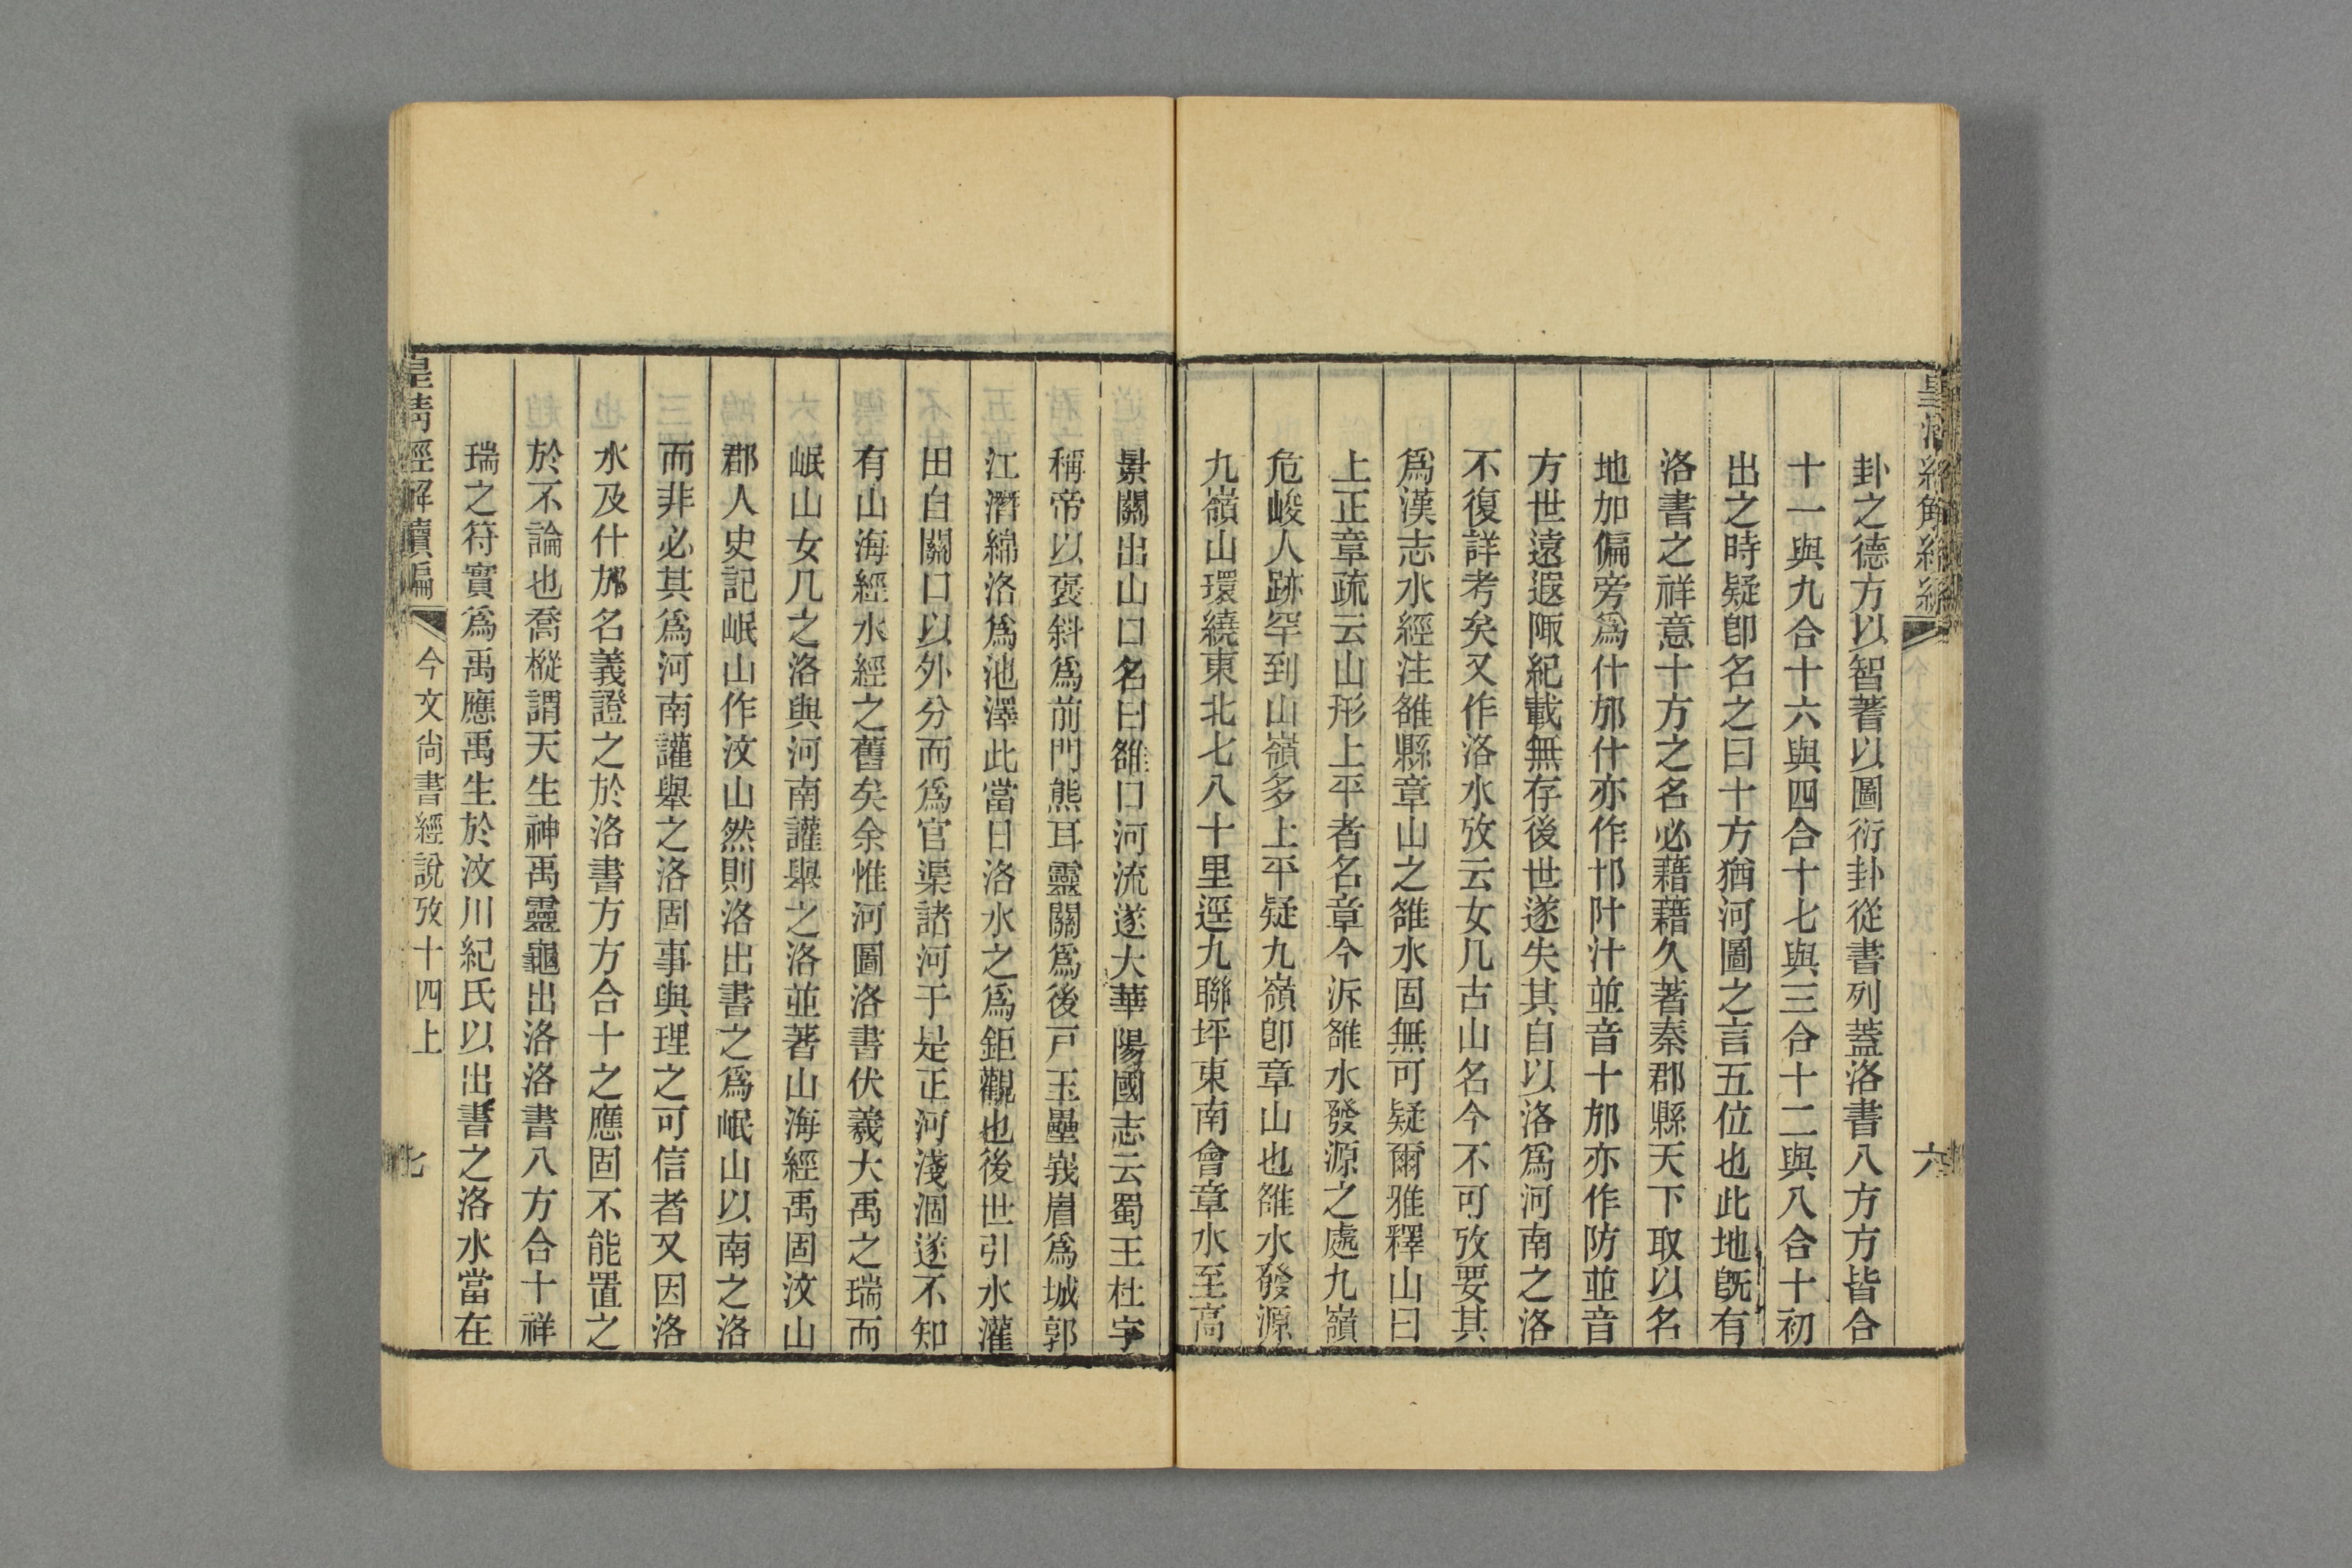 卦之德方以智蓍以圖衍卦從書列蓋洛書八方方皆合
十一與九合十六與四合十七與三合十二與八合十初
出之時疑卽名之曰十方猶河圖之言五位也此地旣有
洛書之祥意十方之名必藉藉久著秦郡縣天下取以名
地加偏旁爲什邡什亦作邟阡汁並音十邡亦作防並音
方世遠遐陬紀載無存後世遂失其自以洛爲河南之洛
不復詳考矣又作洛水攷云女几古山名今不可攷要其
爲漢志水經注雒縣章山之雒水固無可疑爾雅釋山曰
上正章疏云山形上平者名章今泝雒水發源之處九嶺
危峻人跡罕到山嶺多上平疑九嶺卽章山也雒水發源
九嶺山環繞東北七八十里逕九聯坪東南會章水至高
景關出山口名曰雒口河流遂大華陽國志云蜀王杜宇
稱帝以褒斜爲前門熊耳靈關爲後戸玉壘峩眉爲城郭
江潛綿洛爲池澤此當日洛水之爲鉅觀也後世引水灌
田自關口以外分而爲官渠諸河于是正河淺涸遂不知
有山海經水經之舊矣余惟河圖洛書伏羲大禹之瑞而
岷山女几之洛與河南讙舉之洛並著山海經禹固汶山
郡人史記岷山作汶山然則洛出書之爲岷山以南之洛
而非必其爲河南讙舉之洛固事與理之可信者又因洛
水及什邡名義證之於洛書方方合十之應固不能置之
於不論也喬樅謂天生神禹靈龜出洛洛書八方合十祥
瑞之符實爲禹應禹生於汶川紀氏以出書之洛水當在
皇清經解續編
今文尙書經說攷十四上
七
六